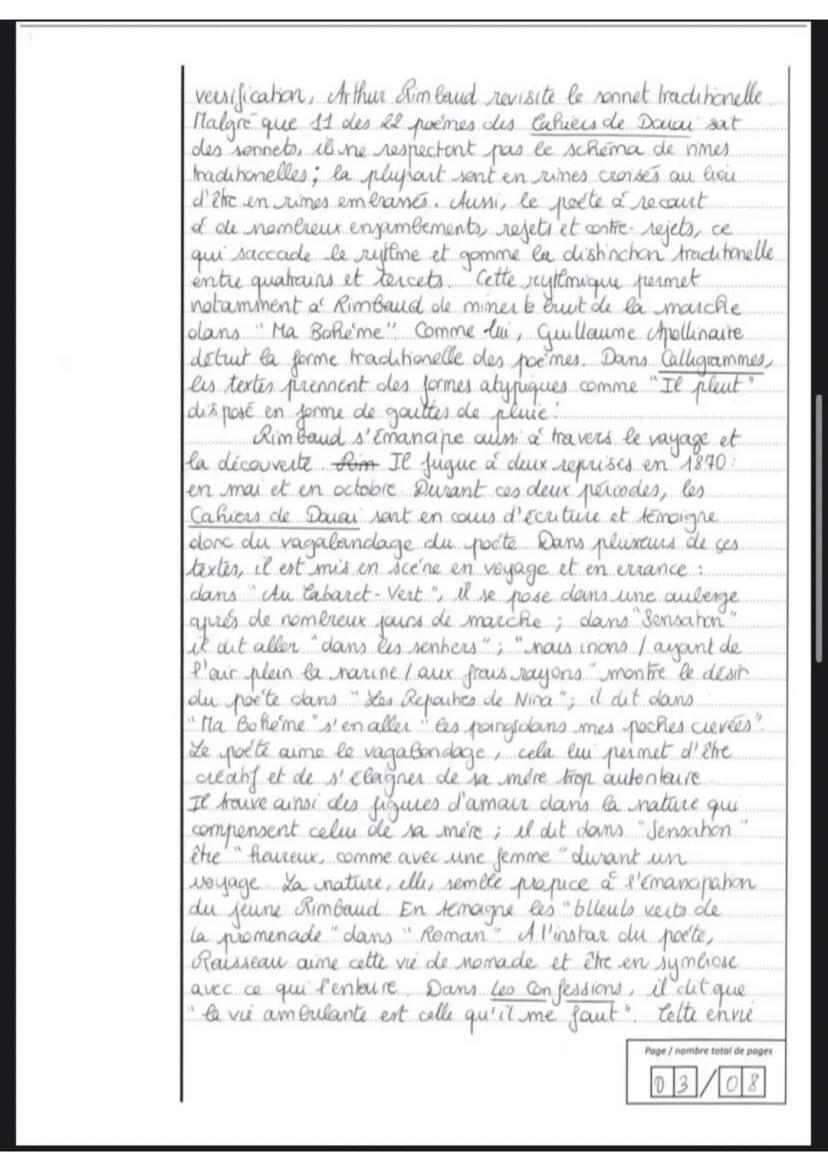 versification, Arthur Rimbaud revisite le sonnet traditionelle.
Malgré que 11 des 22 poèmes des Cahiers de Douai sont
des sonnets, ils ne respectent pas le schéma de rimes
traditionelles ; la plupart sont en rimes croisés au lieu
d'être en rimes embrassés. Aussi, le poète a recourt
à de nombreux enjambements, rejets et contre-rejets, ce
qui saccade le rytme et gomme la distinction traditionelle
entre quatrains et tercets. Cette rytmique permet
notamment à Rimbaud de mimer le bruit de la marche
dans "Ma Bohème". Comme lui, Guillaume Apollinaire
détruit la forme traditionelle des poèmes. Dans Calligrammes,
les textes prennent des formes atypiques comme "Il pleut"
disposé en forme de gouttes de pluie.
Rimbaud s'émancipe aussi à travers le voyage et
la découverte. Rim Il fugue à deux reprises en 1870 :
en mai et en octobre. Durant ces deux périodes, les
Cahiers de Douai sont en cours d'écriture et témoigne
donc du vagabondage du poète. Dans plusieurs de ces
textes, il est mis en scène en voyage et en errance :
dans "Au Cabaret-Vert", il se pose dans une auberge
après de nombreux jours de marche ; dans "Sensation"
il dit aller "dans les sentiers" ; "nous irions / ayant de
l'air plein la narine / aux frais rayons" montre le désir
du poète dans "Les Reparties de Nina" ; il dit dans
"Ma Bohème" s'en aller "les poings dans mes poches crevées".
Le poète aime le vagabondage, cela lui permet d'être
créatif et de s'élogner de sa mère trop autoritaire.
Il trouve ainsi des figures d'amour dans la nature qui
compensent celui de sa mère ; il dit dans "Sensation"
être "heureux, comme avec une femme" durant un
voyage. La nature, elle, semble propice à l'émancipation
du jeune Rimbaud. En témoigne les "tilleuls verts de
la promenade" dans "Roman". A l'instar du poète,
Rousseau aime cette vie de nomade et être en symbiose
avec ce qui l'entoure. Dans Les Confessions, il dit que
"la vie ambulante est celle qu'il me faut". Cette envie
Page / nombre total de pages
03/08